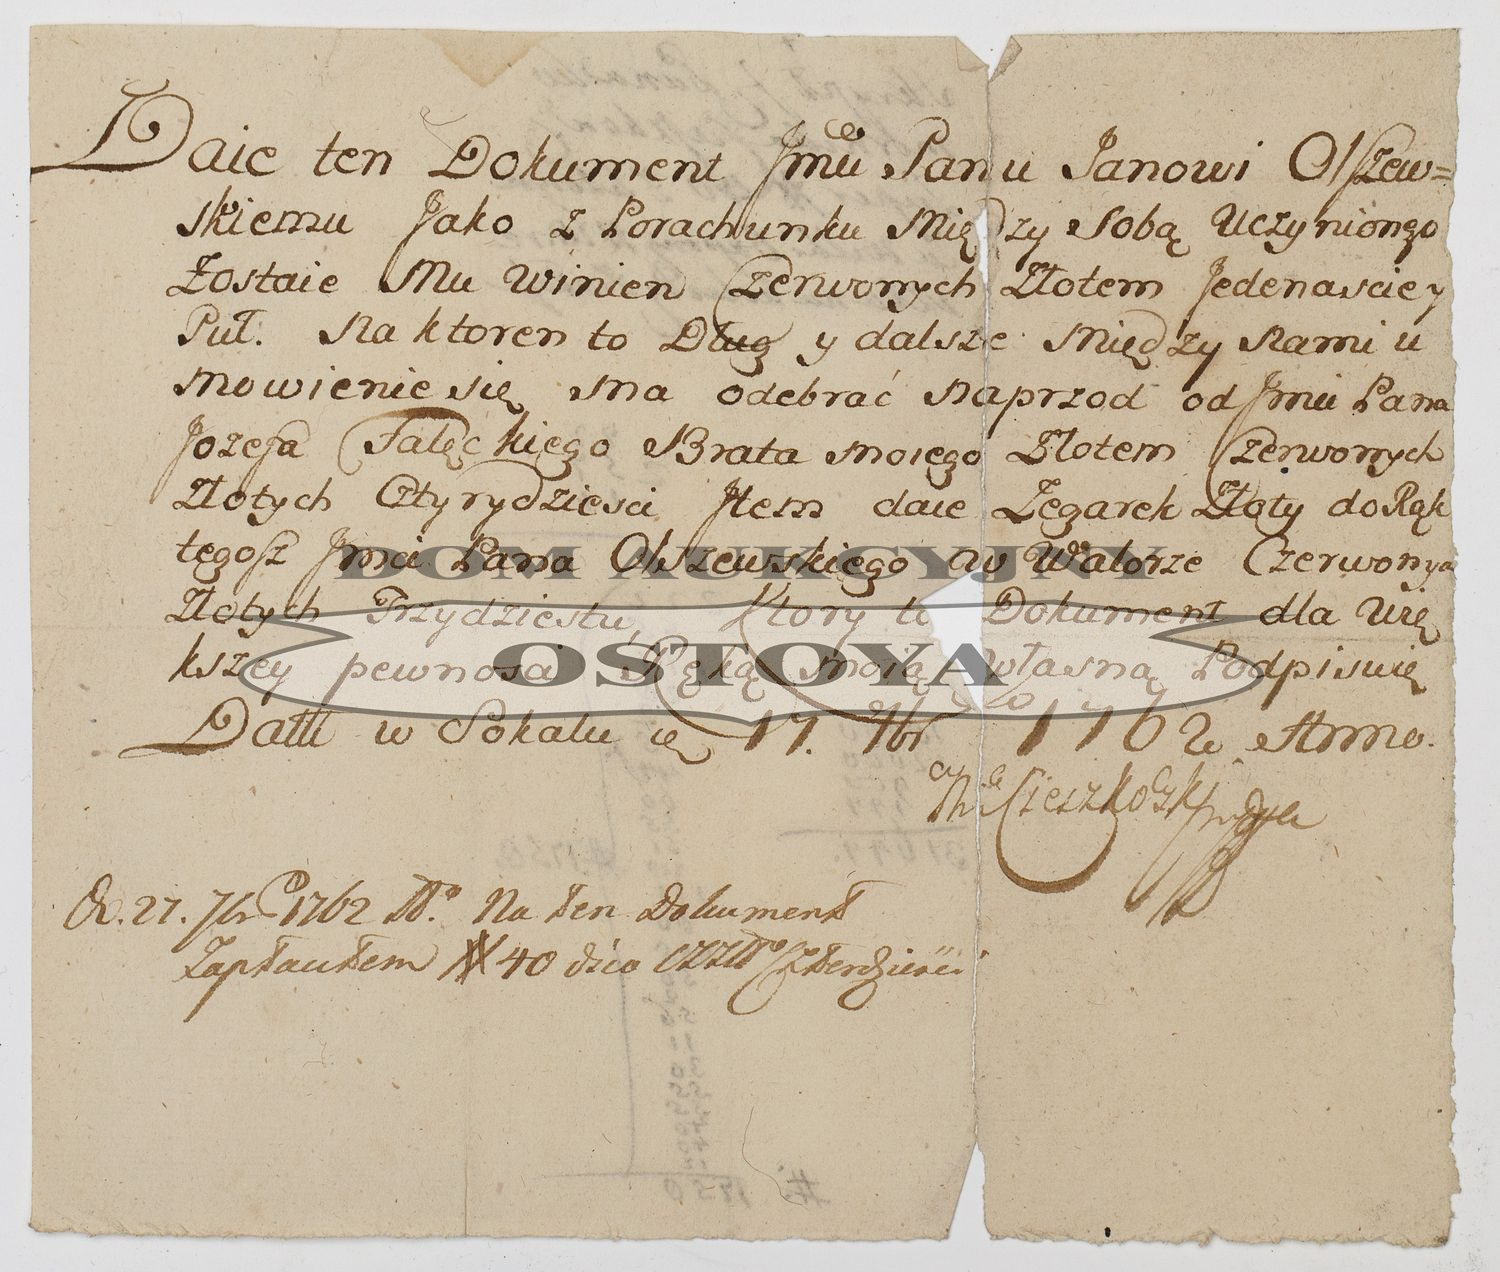 Daie ten Dokument Jmci Panu Janowi Olszew=
skiemu Jako z Porachunku Między Sobą Uczynionego
Zostaie Mu Winien Czerwonych Złotem Jedenascie y
Puł. Na ktoren to Dług y dalsze Między Nami u
mowienie się ma odebrać naprzod od Jmci Pana
Jozefa Falęckiego Brata moiego Złotem Czerwonych
Złotych Cztyrydziesci Jtem daie Zegarek Złoty do Rąk
tegosz Jmci Pana Olszewskiego w Walorze Czerwonych
Złotych Trzydziestu, Ktory to Dokument dla Wię
kszey pewnosci Ręką moią Własną Podpisuię
Datt w Sokalu 17. 7br 1762 Anno.
Cieszkowski
27. 7br 1762 Na ten Dokument
Zapłaciłem # 40 dico Czterdziesci
DOM AUKCYJNY
OSTOYA